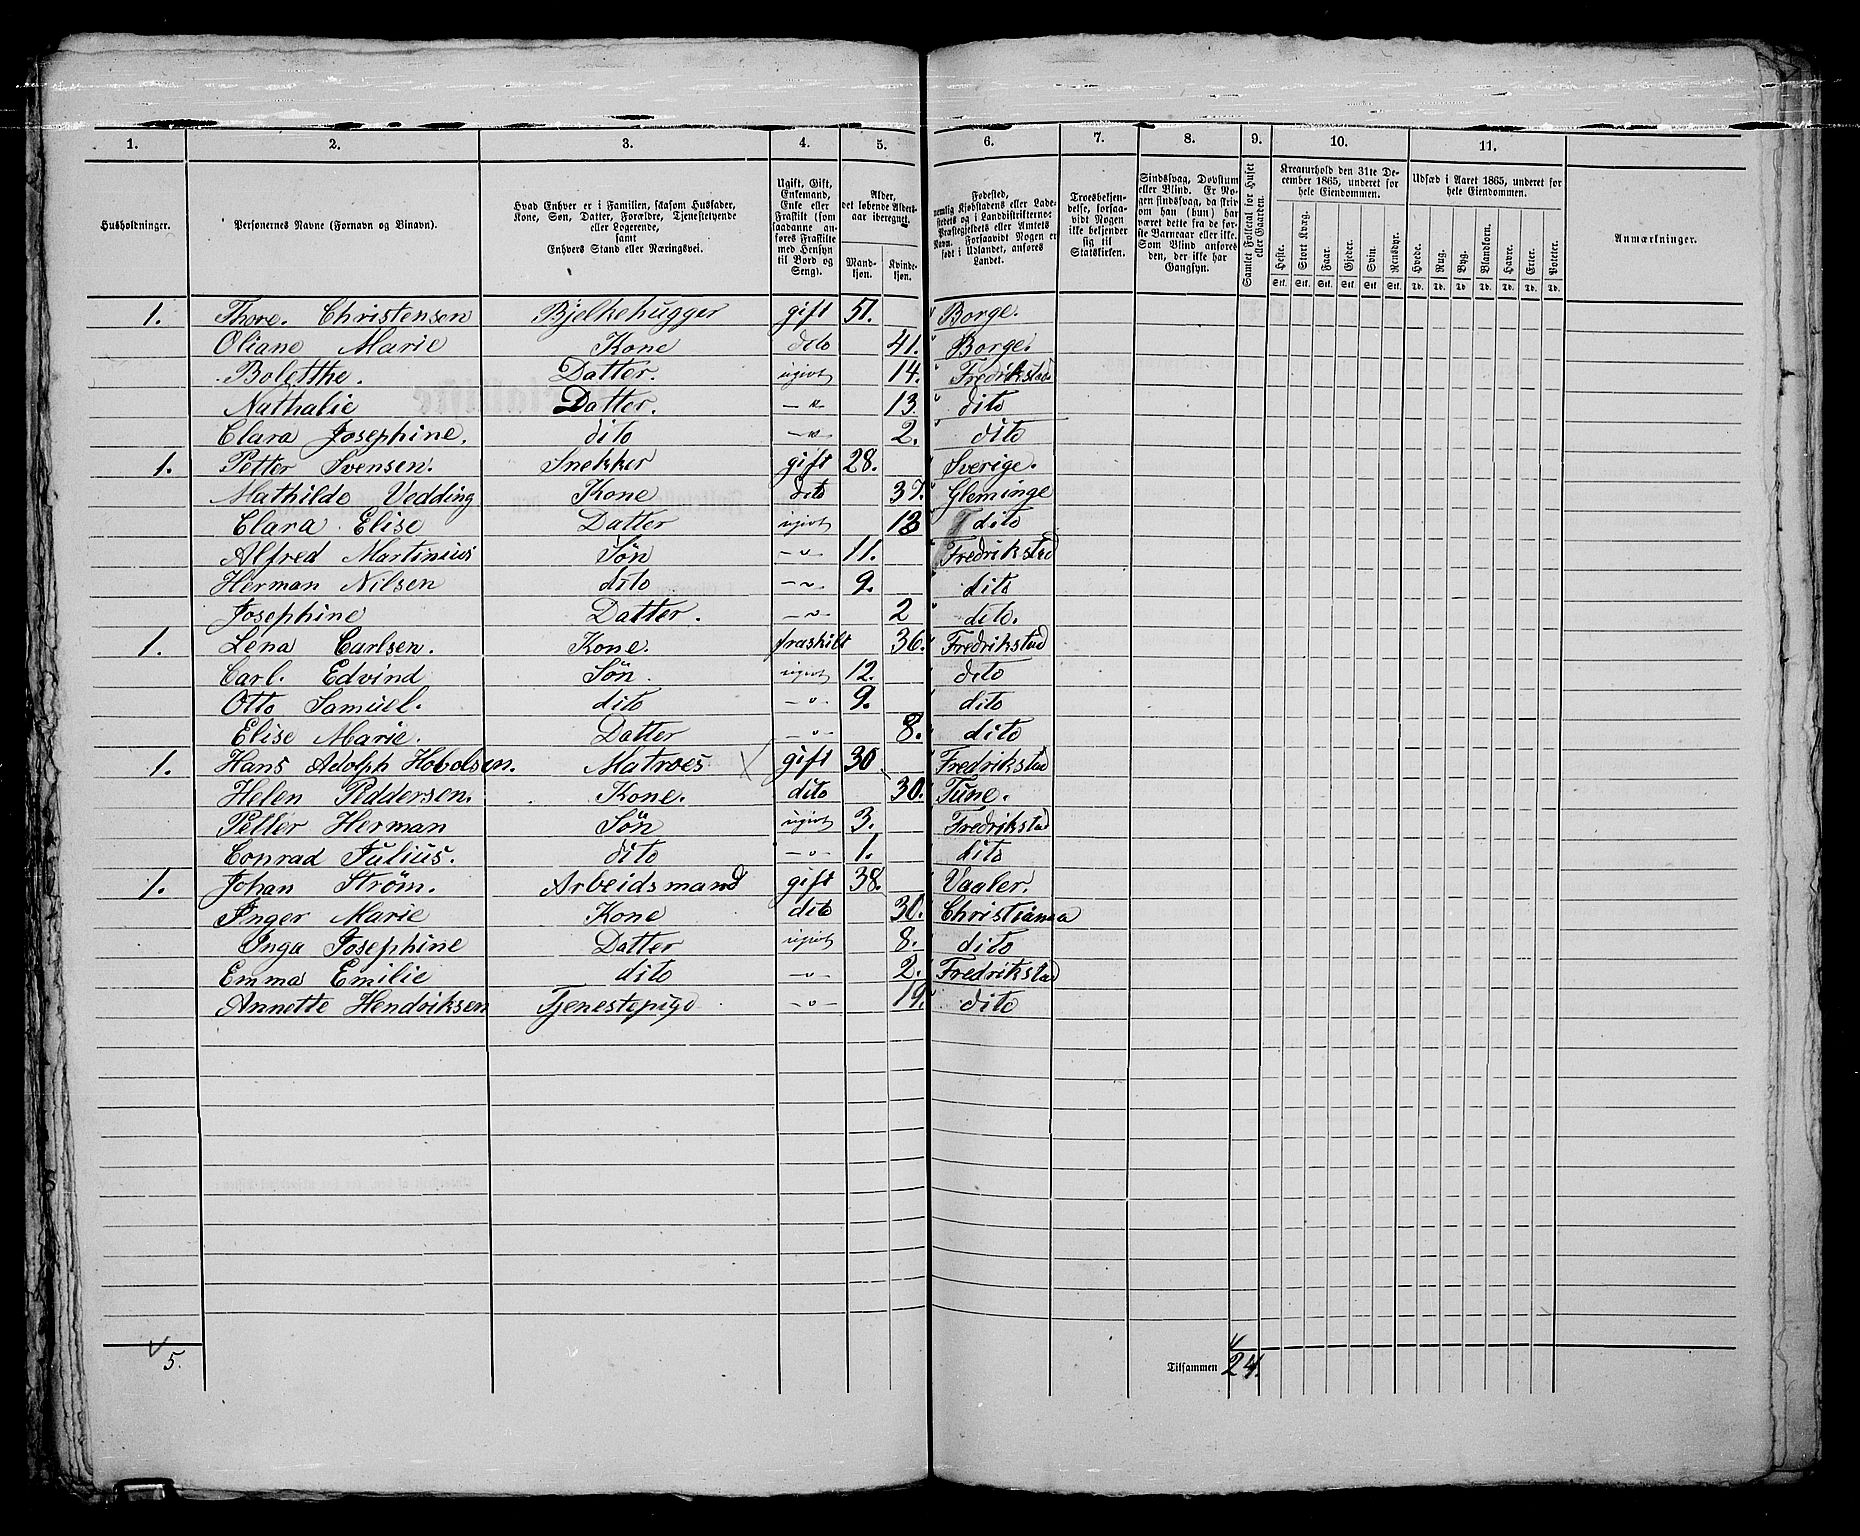 1. 2. 3. 4. 5. 6. 7. 8. 9. 10. 11.
Husholdninger.
Personernes Navne (Fornavn og Binavn).
Hvad Enhver er i Familien, saasom Husfader,
Kone, Søn, Datter, Forældre, Tjenestetyende
eller Logerende,
samt
Enhvers Stand eller Næringsvei.
Ugift, Gift,
Enkemand,
Enke eller
Fraskilt (som
saadanne an-
føres Fraskilte
med Hensyn
til Bord og
Seng).
Alder,
det løbende Alders-
aar iberegnet.
Mand-
kjøn.
Kvinde-
kjøn.
Fødested,
nemlig Kjøbstadens eller Lade-
stedets og i Landdistrikterne
Præstegjeldets eller Amtets
Navn. Forsaavidt Nogen er
født i Udlandet, anføres
Landet.
Troesbekjen-
delse, forsaa-
vidt Nogen
ikke bekjender
sig til
Statskirken.
Sindssvag, Døvstum
eller Blind. Er No-
gen sindssvag, da skriv
om han (hun) har
været dette fra de før-
ste Barneaar eller ikke.
Som Blind anføres
den, der ikke har
Gangsyn.
Samlet Folketal for Huset
eller Gaarden.
Kreaturhold den 31te De-
cember 1865, underet for
hele Eiendommen.
Heste. Stort Kvæg. Faar. Gjeder. Svin. Rensdyr.
Stk. Stk. Stk. Stk. Stk. Stk.
Udsæd i Aaret 1865, underet for
hele Eiendommen.
Hvede. Rug. Byg. Blandkorn. Havre. Erter. Poteter.
Td. Td. Td. Td. Td. Td. Td.
Anmærkninger.
1. Thore. Christensen Bjelkehugger gift 51. Borge.
Oliane Marie Kone dito 41. Borge.
Boletthe. Datter. ugivt 14. Fredrikstad
Nathalie Datter. — " — 13. dito
Clara Josephine. dito — " — 2. dito
1. Petter Svensen. Snekker gift 28. Sverige.
Mathilde Vedding Kone dito 37. Gleminge
Clara Elise Datter ugivt 13 dito
Alfred Martinius Søn — " — 11. Fredrikstad
Herman Nilsen dito — " — 9. dito
Josephine Datter. — " — 2 dito.
1. Lena Carlsen. Kone. fraskilt 36. Fredrikstad
Carl. Edvind Søn. ugivt 12. dito
Otto Samuel. dito — " — 9. dito
Elise Marie. Datter — " — 8. dito
1. Hans Adolph Hobolsen. Matroes gift 30 Fredrikstad
Helen Peddersen. Kone. dito 30. Tune.
Petter Herman Søn ugivt 3. Fredrikstad
Conrad Julius. dito — " — 1. dito
1. Johan Strøm. Arbeidsmand gift 38. Vaaler.
Inger Marie Kone dito 30. Christiania
Inga Josephine Datter ugivt 8. dito
Emma Emilie dito — " — 2. Fredrikstad
Annette Hendriksen Tjenestepige — " — 19. dito
5.
Tilsammen 24.